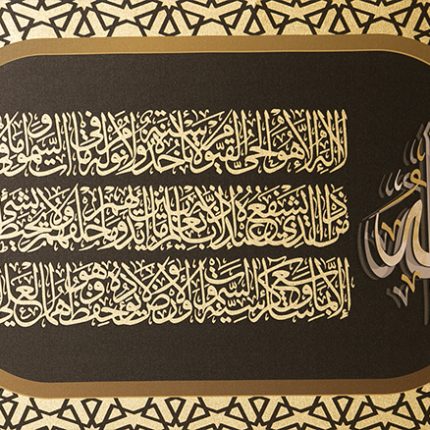 الله
لا إله إلا هو الحي القيوم لا تأخذه سنة ولا نوم له ما في السموات وما
من ذا الذي يشفع عنده إلا بإذنه يعلم ما بين أيديهم وما خلفهم ولا يحيطون بشيء
إلا بما شاء وسع كرسيه السموات والأرض ولا يؤده حفظهما وهو العلي